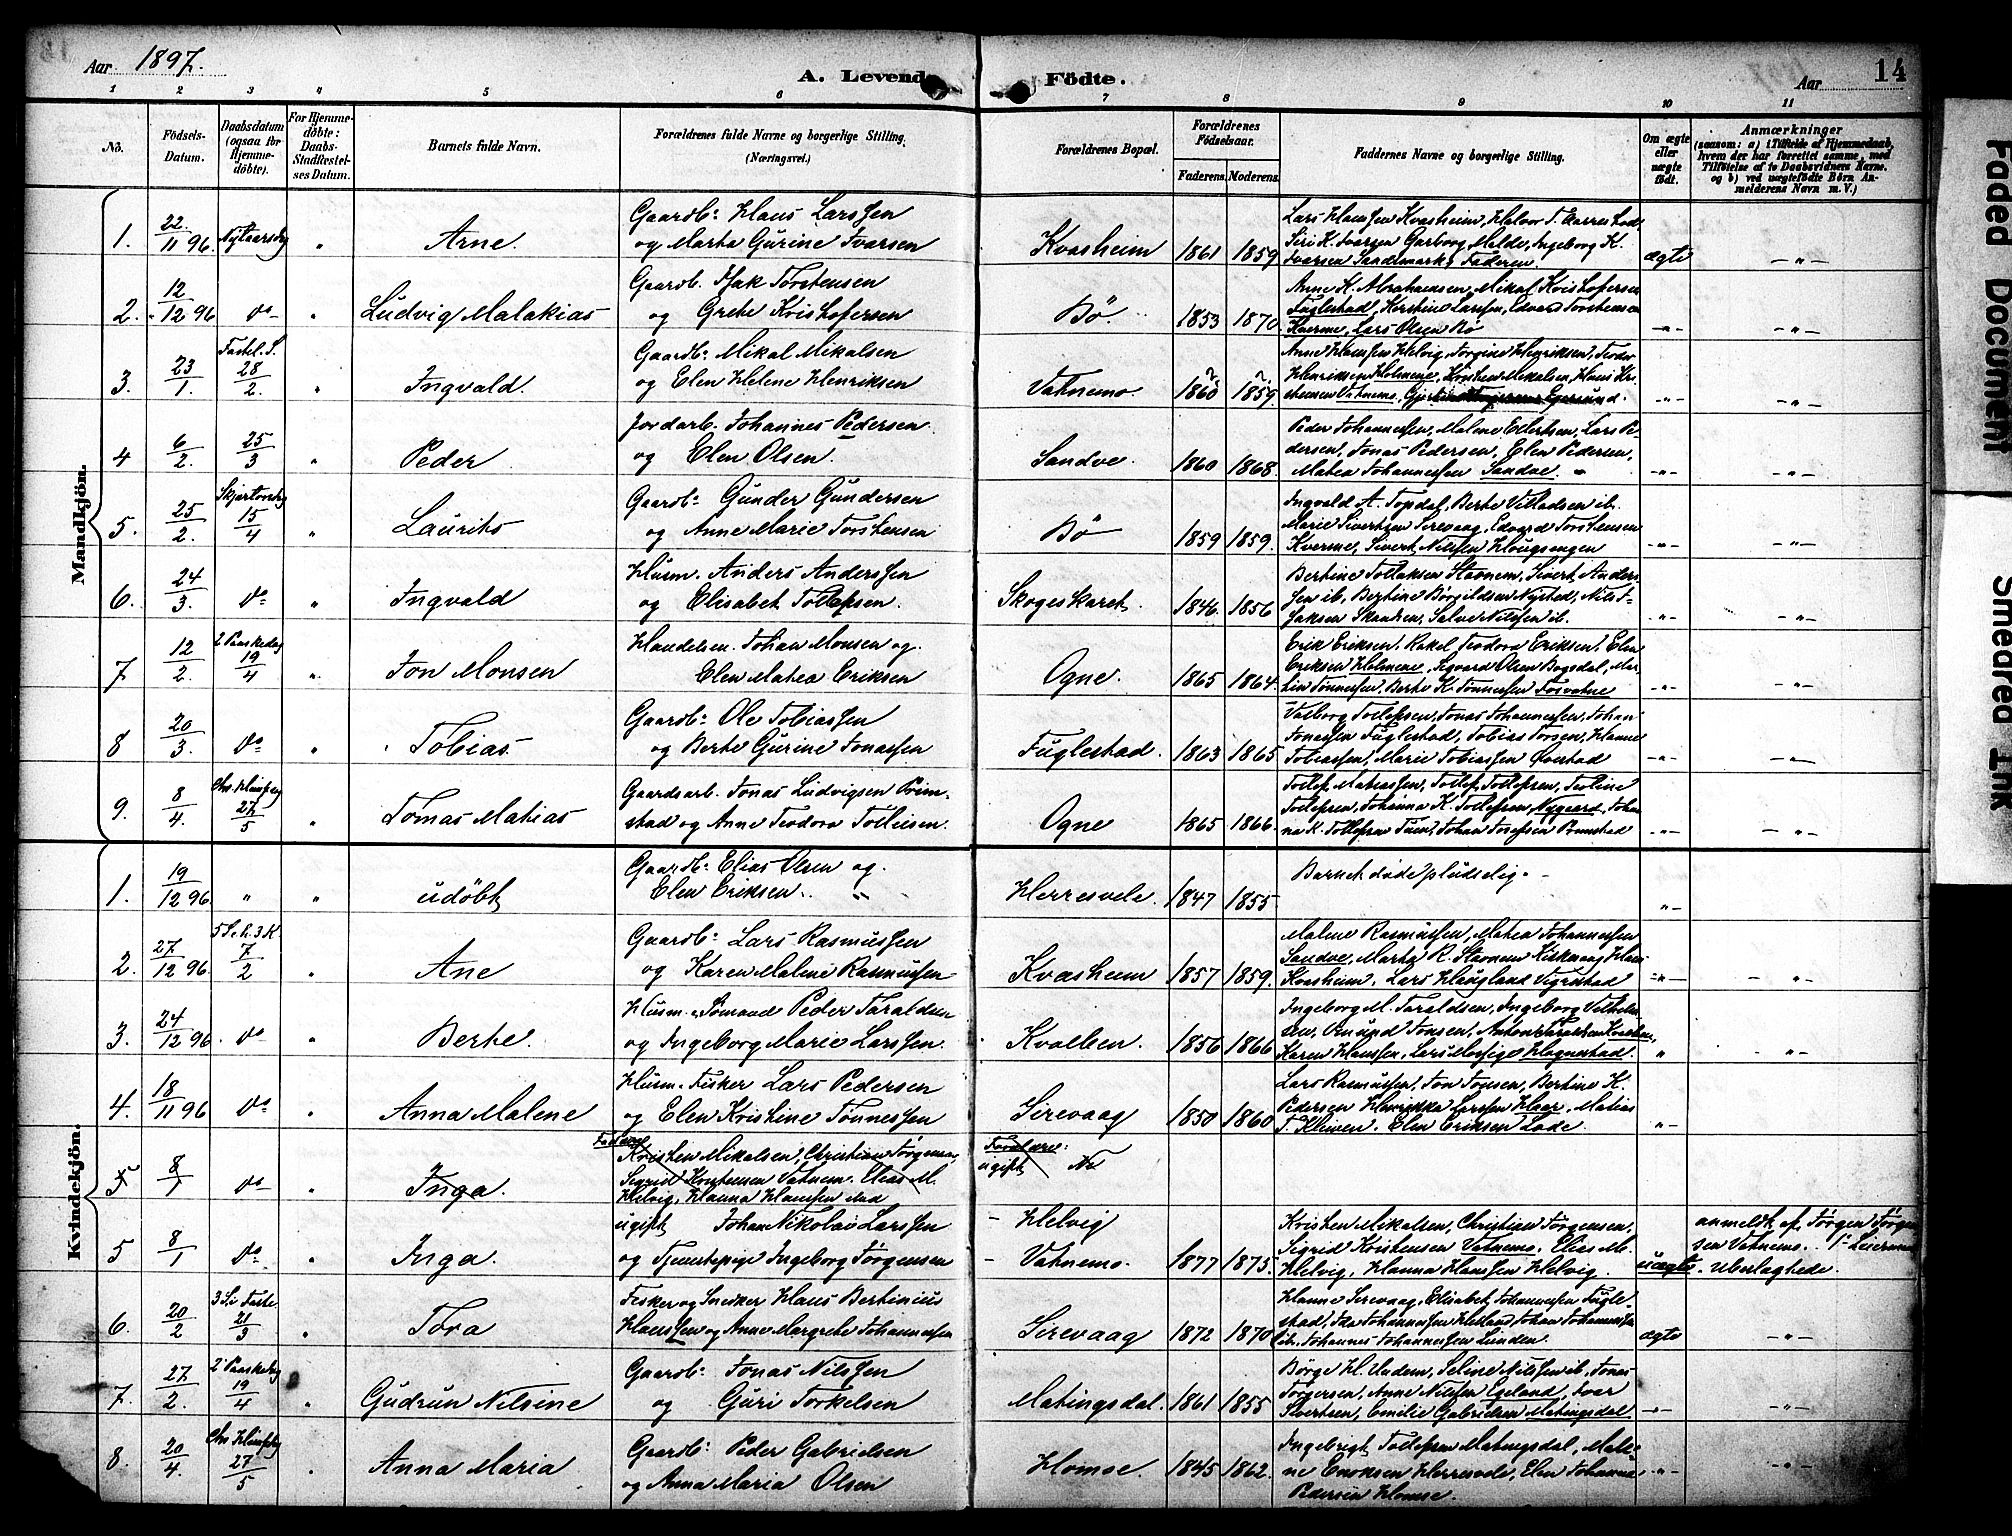 Aar 1897. A. Levende Födte. Aar 14
1 2 3 4 5 6 7 8 9 10 11
No. Födsels-Datum. Daabsdatum (ogsaa for Hjemmedöbte). For Hjemmedöbte: Daabs-Stadfæstelses Datum. Barnets fulde Navn. Forældrenes fulde Navne og borgerlige Stilling. (Næringsvei.) Forældrenes Bopæl. Forældrenes Födselsaar. Faderens. Moderens. Faddernes Navne og borgerlige Stilling. Om ægte eller uægte födt. Anmærkninger (saasom: a) i Tilfælde af Hjemmedaab, hvem der har forrettet samme, med Tilföielse af to Daabsvidners Navne. og b) ved uægtefödte Börn Anmelderens Navn m. V.)
Mandkjön.
1. 22/11 96. Nytaarsdag " Arne. Gaardb: Klaus Larssen
og Marta Gurine Ivarsen Kvasheim 1861 1859 ægte — " —
Lars Klausen Kvasheim, Halvor T.
Siri K. Ivarsen Garborg, Malde, Ingeborg K.
Ivarsen Sandsmark, Faderen.
2. 12/12 96 do " Ludvig Malakias Gaardb. Isak Torstensen
og Grete Kristofersen Bö. 1853 1870 — " —
Anne K. Abrahamsen, Mikal Kristofersen
Fuglestad, Kerstine Larssen, Edvard Torstensen
Kverme, Lars Olsen Bö
3. 23/1. Fastel. S. 28/2. " Ingvald. Gaardb: Mikal Mikalsen
og Elen Helene Henriksen Vatnemo. 1860 1859 — " —
Anne Hanssen Helvig, Torgine Henriksen, Teodor
Henriksen Holmene, Kristen Mikalsen, Hans Kri-
stensen Vatnemo,
4 6/2. 25/3 " Peder Jordarb. Johannes Pedersen
og Elen Olsen. Sandve. 1860 1868. — " —
Peder Johannessen, Malene Eilertsen, Lars Pe-
dersen, Jonas Pedersen, Elen Pedersen,
Matea Johannessen Sandve.
5. 25/2. Skjærtorsdag 15/4 " Laurits Gaardb: Gunder Gundersen
og Anne Marie Torstensen Bö 1859 1859. — " —
Ingvald A. Topdal, Berte Villadsen ib.
Marie Sivertsen Sirevaag, Edvard Torstensen
Kverme, Sivert Nilssen Hougsengen
6. 24/3. do " Ingvald Husm. Anders Anderssen
og Elisabet Tollefsen. Skogeskaret 1846 1856 — " —
Bertine Tollaksen Stavnem, Sivert Anders-
sen ib, Bertine Börgildsen Nysted, Nils T-
Salve Nilssen ib.
7 12/2. 2 Paaskedag 19/4 " Jon Monsen Handelsm. Johan Monsen og
Elen Matea Eriksen Ogne. 1865 1864. — " —
Erik Eriksen, Rakel Teodora Eriksen, Elen
Eriksen Holmene, Sigvard Olsen Bogsdal, Mar-
tin Tönnessen, Berte K. Tönnessen Fosvatne
8 20/3. do " Tobias. Gaardb: Ole Tobiassen
og Berte Gurine Jonassen Fuglestad. 1863 1865 — " —
Valborg Tollefsen, Jonas Johannessen, Johan
Jonassen Fuglestad, Tobias Torsen, Hanne
Tobiassen, Marie Tobiassen
9. 8/4. Chr. Himfdg 27/5 " Tomas Matias Gaardsarb. Jonas Ludvigsen Prim-
stad og Anne Teodora Tolleisen. Ogne 1865 1866. — " —
Tollef Matiassen, Tollef Tollefsen, Teoline
Tollefsen, Johanna K. Tollefsen Nygaard, Johan-
na K. Tollefsen Tuen, Johan Josefsen Primstad
Kvindekjön.
1. 19/12 96. " " udöbt Gaardb: Elias Olsen og
Elen Eriksen. Herresvele. 1847 1855. Barnet döde pludselig. " —
2. 27/12 96. 5 S. e. h. 3 K. 7/2 " Ane Gaardb: Lars Rasmussen
og Karen Malene Rasmussen Kvasheim 1857 1859. — " —
Malene Rasmussen, Matea Johannessen
Sandve, Marta R. Stavnem Kirkevaag,
Kvasheim, Lars Haugland Vigrestad
3. 24/12 96. do " Berte. Husm. Sömand Peder Taraldsen
og Ingeborg Marie Larssen. Kvalben. 1856 1866 " — " —
Ingeborg M. Taraldsen, Ingeborg Vilhelm-
sen, Omund Jonsen, Anton Taraldsen Kvalben,
Karen Hanssen, Lars Mossige Hognestad.
4. 18/11 96 do " Anna Malene Husm. Fisker Lars Pedersen
og Elen Kristine Tönnessen Sirevaag 1850 1860 " —
Lars Rasmussen, Jon Jonsen, Bertine K.
Pedersen Henrikka Larssen Haar, Matias
T. Kleven. Elen Eriksen Lode.
5 8/1 do " Inga. Faddere
Kristen Mikalsen, Christian Törgensen,
Sigrid Kristensen Vatnem. Elias M.
Helvig, Hanna Hanssen ibid Forældre:
ugift No
5 8/1 do " Inga. ugift Johan Nikolai Larssen
og Tjenestepige Ingeborg Törgensen — Helvig
— Vatnemo. 1877 1875. uægte
Kristen Mikalsen, Christian Törgensen,
Sigrid Kristensen Vatnemo. Elias M.
Helvig, Hanna Hanssen Helvig.
anmeldt af Törgen Törgen-
sen Vatnemo. 1ste Leiermaal
Uberlagtede.
6. 20/2 3 S i Faste 21/3 " Tora Fisker og Snedker Hans Bertinius
Hanssen og Anne Margrete Johannessen Sirevaag 1872 1870 ægte — " —
Hanne Sirevaag, Elisabet Johannessen Fugle-
stad, Ida Johannessen Helland, Johan Johannessen
ib. Johannes Johannessen Lunden.
7 27/2. 2 Paaskedag 19/4 " Gudrun Nilsine Gaardb: Jonas Nilssen
og Guri Torkelsen Matingsdal. 1861 1855 — " —
Börge H. Undem, Seline Nilssen ib, Jonas
Törgersen, Anne Nilssen Egeland, Ivar
Sivertsen, Emilie Gabrielsen Matingsdal
8. 20/4. Chr. Himfdg 27/5 " Anna Maria Gaardb: Peder Gabrielsen
og Anna Maria Olsen Homse. 1845 1862. — " —
Ingebrigt Tollefsen Matingsdal, Male-
ne Enoksen Herresvele, Elen Johanna
Pedersen Homse.
Faded Document
Smeared Ink